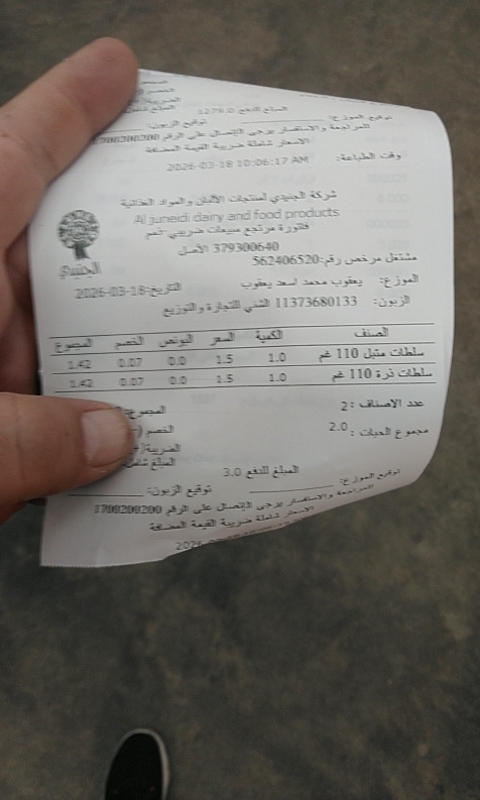 المبلغ للدفع 1279.0
توقيع الموزع: توقيع الزبون:
للمراجعة والاستفسار يرجى الإتصال على الرقم 1700200200
الاسعار شاملة ضريبة القيمة المضافة
وقت الطباعة: 2026-03-18 10:06:17 AM
شركة الجنيدي لمنتجات الألبان والمواد الغذائية
Al juneidi dairy and food products
فاتورة مرتجع مبيعات ضريبي-ذمم
379300640 الأصل
مشتغل مرخص رقم:562406520
الجنيدي
الموزع: يعقوب محمد اسعد يعقوب التاريخ:2026-03-18
الزبون: 11373680133 الشني للتجارة والتوزيع
الصنف الكمية السعر البونص الخصم المجموع
سلطات متبل 110 غم 1.0 1.5 0.0 0.07 1.42
سلطات ذرة 110 غم 1.0 1.5 0.0 0.07 1.42
عدد الاصناف :2 المجموع
مجموع الحبات : 2.0 الخصم
الضريبة
المبلغ
المبلغ للدفع 3.0
توقيع الموزع: توقيع الزبون:
للمراجعة والاستفسار يرجى الإتصال على الرقم 1700200200
الاسعار شاملة ضريبة القيمة المضافة